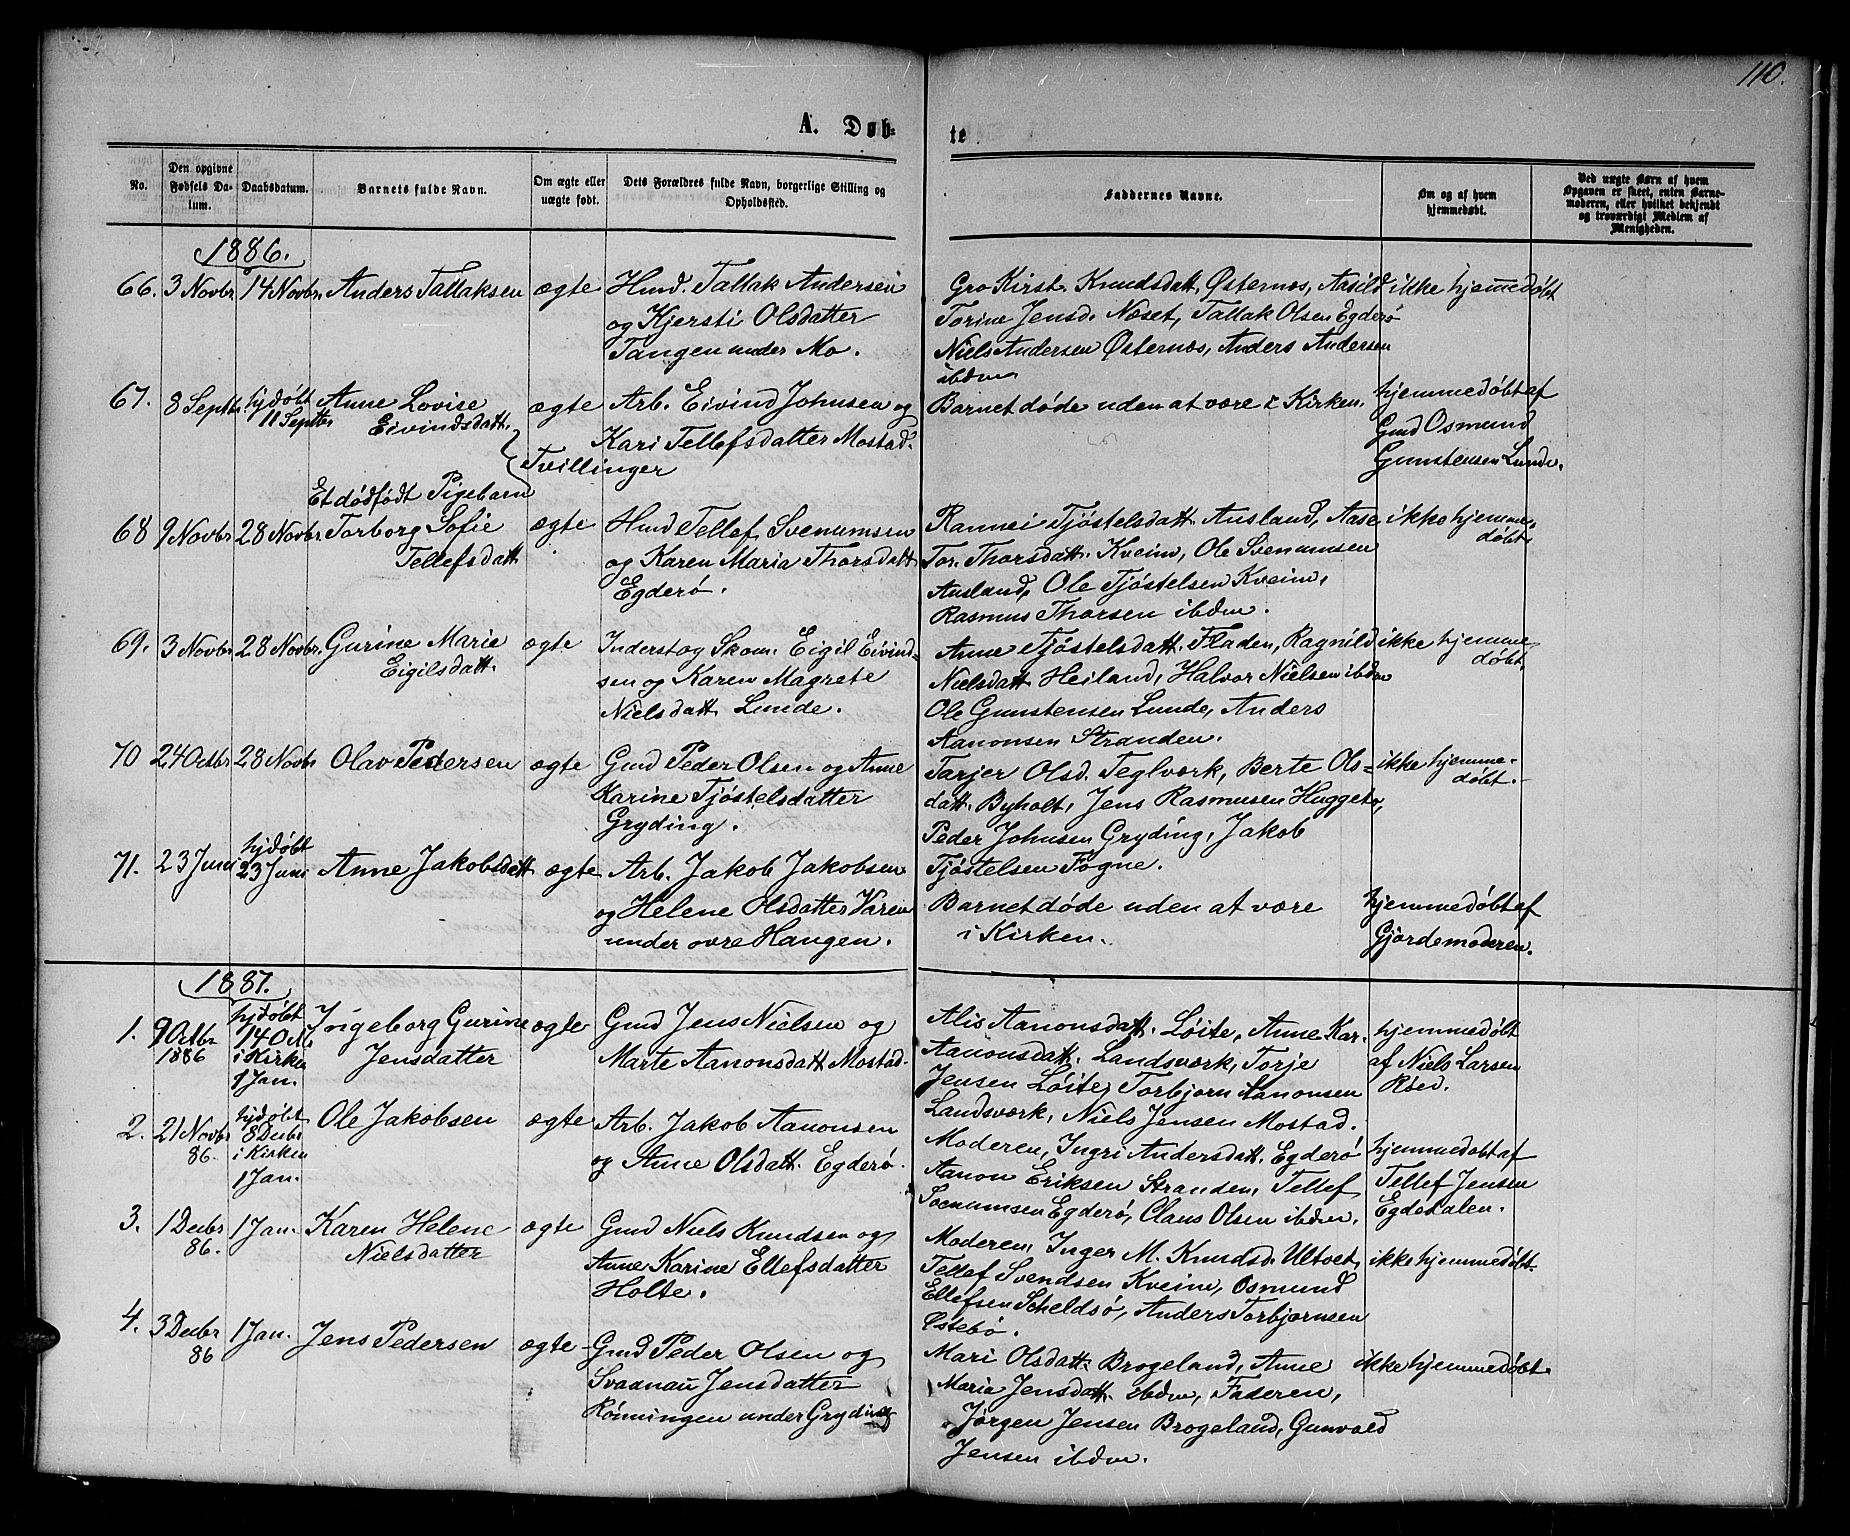 110.
A. Døb-
te
No.
Den opgivne Fødsels Datum.
Daabsdatum.
Barnets fulde Navn.
Om ægte eller uægte født.
Dets Forældres fulde Navn, borgerlige Stilling og Opholdssted.
Faddernes Navne.
Om og af hvem hjemmedøbt.
Ved uægte Børn af hvem Opgaven er skeet, enten Barnemoderen, eller hvilket bekjendt og troværdigt Medlem af Menigheden.
1886.
66. 3 Novbr 14 Novbr. Anders Tallaksen ægte Gmd. Tallak Andersen
og Kjersti Olsdatter
Tangen under Mo.
Gro Kirst. Knudsdatt. Østernæs, Aasild
Torine Jensd. Næset, Tallak Olsen Egderö
Niels Andersen Østernæs, Anders Andersen
ibdm
ikke hjemmedøbt
67. 8 Septbr hjdøbt
11 Septbr
Anne Lovise
Eivindsdatt.
Et dödfödt Pigebarn
Tvillinger
ægte Arb. Eivind Johnsen og
Kari Tellefsdatter Mostad.
Barnet döde uden at være i Kirken.
hjemmedøbt af
Gmd Osmund
Gunstensen Lunde.
68 9 Novbr 28 Novbr. Torborg Sofie
Tellefsdatt
ægte Gmd Tellef Svenumsen
og Karen Maria Thorsdatt
Egderö.
Rannei Tjöstelsdatt Ausland, Aase
Tor. Thorsdatt. Kveim, Ole Svenumsen
Ausland, Ole Tjöstelsen Kveim,
Rasmus Thorsen ibdm.
ikke hjemme-
døbt.
69. 3 Novbr 28 Novbr. Gurine Marie
Eigilsdatt.
ægte Inderst og Skom. Eigil Eivind-
sen og Karen Magrete
Nielsdatt Lunde.
Anne Tjöstelsdatt. Fladen, Ragnild
Nielsdatt Heiland, Halvor Nielsen ibdm
Ole Gunstensen Lunde, Anders
Aanonsen Stranden.
ikke hjemme-
døbt.
70 24 Octbr 28 Novbr Olav Pedersen ægte Gmd Peder Olsen og Anne
Karine Tjöstelsdatter
Gryding.
Tarjer Olsd. Teglværk, Berte Ols-
datt. Byholt, Jens Rasmusen Huggeto,
Peder Johnsen Gryding, Jakob
Tjöstelsen Fogne.
ikke hjemme-
døbt.
71. 23 Juni hjdøbt
23 Juni
Anne Jakobsdatt ægte Arb. Jakob Jakobsen
og Helene Olsdatter Varen
under ovre Haugen.
Barnet döde uden at være
i Kirken.
hjemmedøbt af
Gjordemoderen.
1887.
1. 9 Octbr
1886
hjdøbt
14 Oct
i Kirken
1 Jan.
Ingeborg Gurine
Jensdatter
ægte Gmd Jens Nielsen og
Marte Aanonsdatt Mostad.
Alis Aanonsdatt. Löite, Anne Kar.
Aanonsdatt. Landsværk, Torje
Jensen Löite, Torbjorn Aanonsen
Landsværk, Niels Jensen Mostad.
hjemmedølt
af Niels Larsen
Röed.
2. 21 Novbr
86.
hjdøbt
8 Decbr
i Kirken
1 Jan.
Ole Jakobsen ægte Arb. Jakob Aanonsen
og Anne Olsdatt. Egderö.
Moderen, Ingri Andersdatt. Egderö
Aanon Eriksen Stranden, Tellef
Svenumsen Egderö, Claus Olsen ibdm.
hjemmedobt af
Tellef Jensen
Egdedalen.
3. 1 Decbr
86.
1 Jan. Karen Helene
Nielsdatter
ægte Gmd Niels Knudsen og
Anne Karine Ellefsdatter
Holte.
Moderen, Inger M. Knudsd. Ultvet,
Tellef Svendsen Kveim, Osmund
Ellefsen Scheldsö, Anders Torbjornsen
Østebö.
ikke hjemmedøbt.
4. 3 Decbr
86
1 Jan. Jens Pedersen ægte Gmd Peder Olsen og
Svaanau Jensdatter
Rönningen under Gryding
Mari Olsdatt. Brogeland, Anne
Maria Jensdatt. ibdm, Faderen,
Jørgen Jensen Brogeland, Gunvald
Jensen ibdm.
ikke hjemmedøbt.